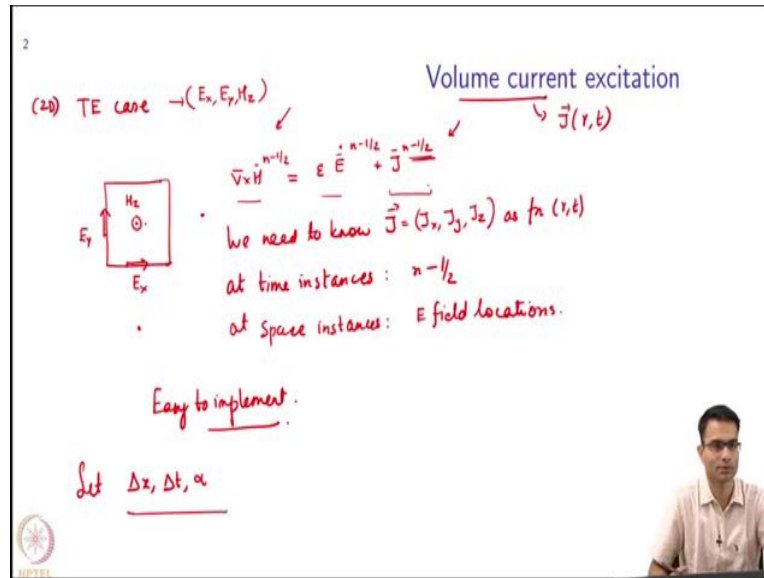 2
Volume current excitation
(2D) TE case → (Ex, Ey, Hz)
J⃗(r,t)
∇̄×H̄^{n-1/2} = ε Ė^{n-1/2} + J̄^{n-1/2}
Hz
Ey
Ex
We need to know J⃗ = (Jx, Jy, Jz) as fn (r,t)
at time instances: n-1/2
at space instances: E field locations.
Easy to implement.
Let Δx, Δt, α
NPTEL